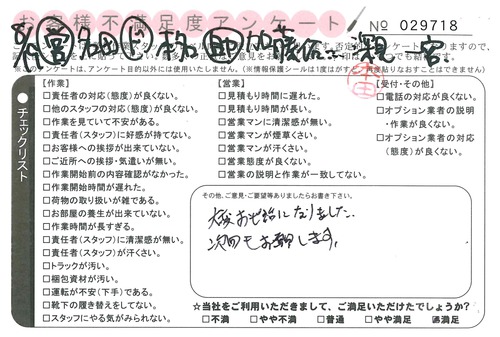 お客様不満足度アンケート
No 029718
※このアンケートは、アンケート目的以外には使用いたしません。(※情報保護シールは1度はがすと
チェックリスト
【作業】
□責任者の対応(態度)が良くない。
□他のスタッフの対応(態度)が良くない。
□作業を見ていて不安がある。
□責任者(スタッフ)に好感が持てない。
□お客様への挨拶が出来ていない。
□ご近所への挨拶・気遣いが無い。
□作業開始前の内容確認がなかった。
□作業開始時間が遅れた。
□荷物の取り扱いが雑である。
□お部屋の養生が出来ていない。
□作業時間が長すぎる。
□責任者(スタッフ)に清潔感が無い。
□責任者(スタッフ)が汗くさい。
□トラックが汚い。
□梱包資材が汚い。
□運転が不安(下手)である。
□靴下の履き替えをしてない。
□スタッフにやる気がみられない。
【営業】
□見積もり時間に遅れた。
□見積もり時間が長い。
□営業マンに清潔感が無い。
□営業マンが煙草くさい。
□営業マンが汗くさい。
□営業態度が良くない。
□営業の説明と作業が一致してない。
【受付・その他】
□電話の対応が良くない。
□オプション業者の説明
・作業が良くない。
□オプション業者の対応
(態度)が良くない。
その他、ご意見・ご要望等ありましたらお書き下さい。
大変お世話になりました。
次回もお願いします。
☆当社をご利用いただきまして、ご満足いただけたでしょうか?
□不満 □やや不満 □普通 □やや満足 ☑満足